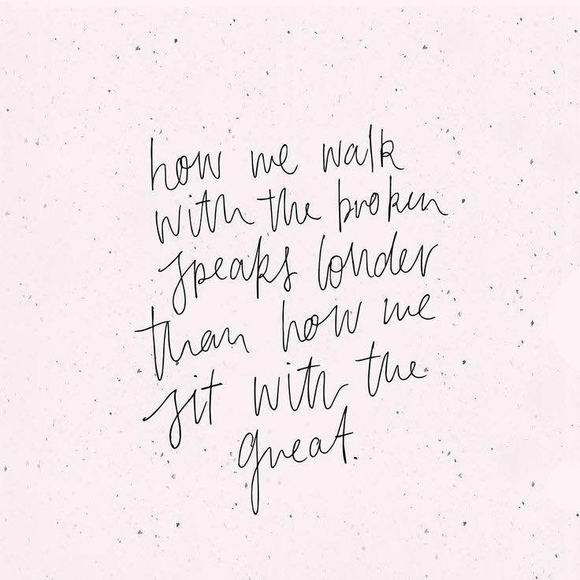 how we walk
with the broken
speaks louder
than how we
sit with the
great.